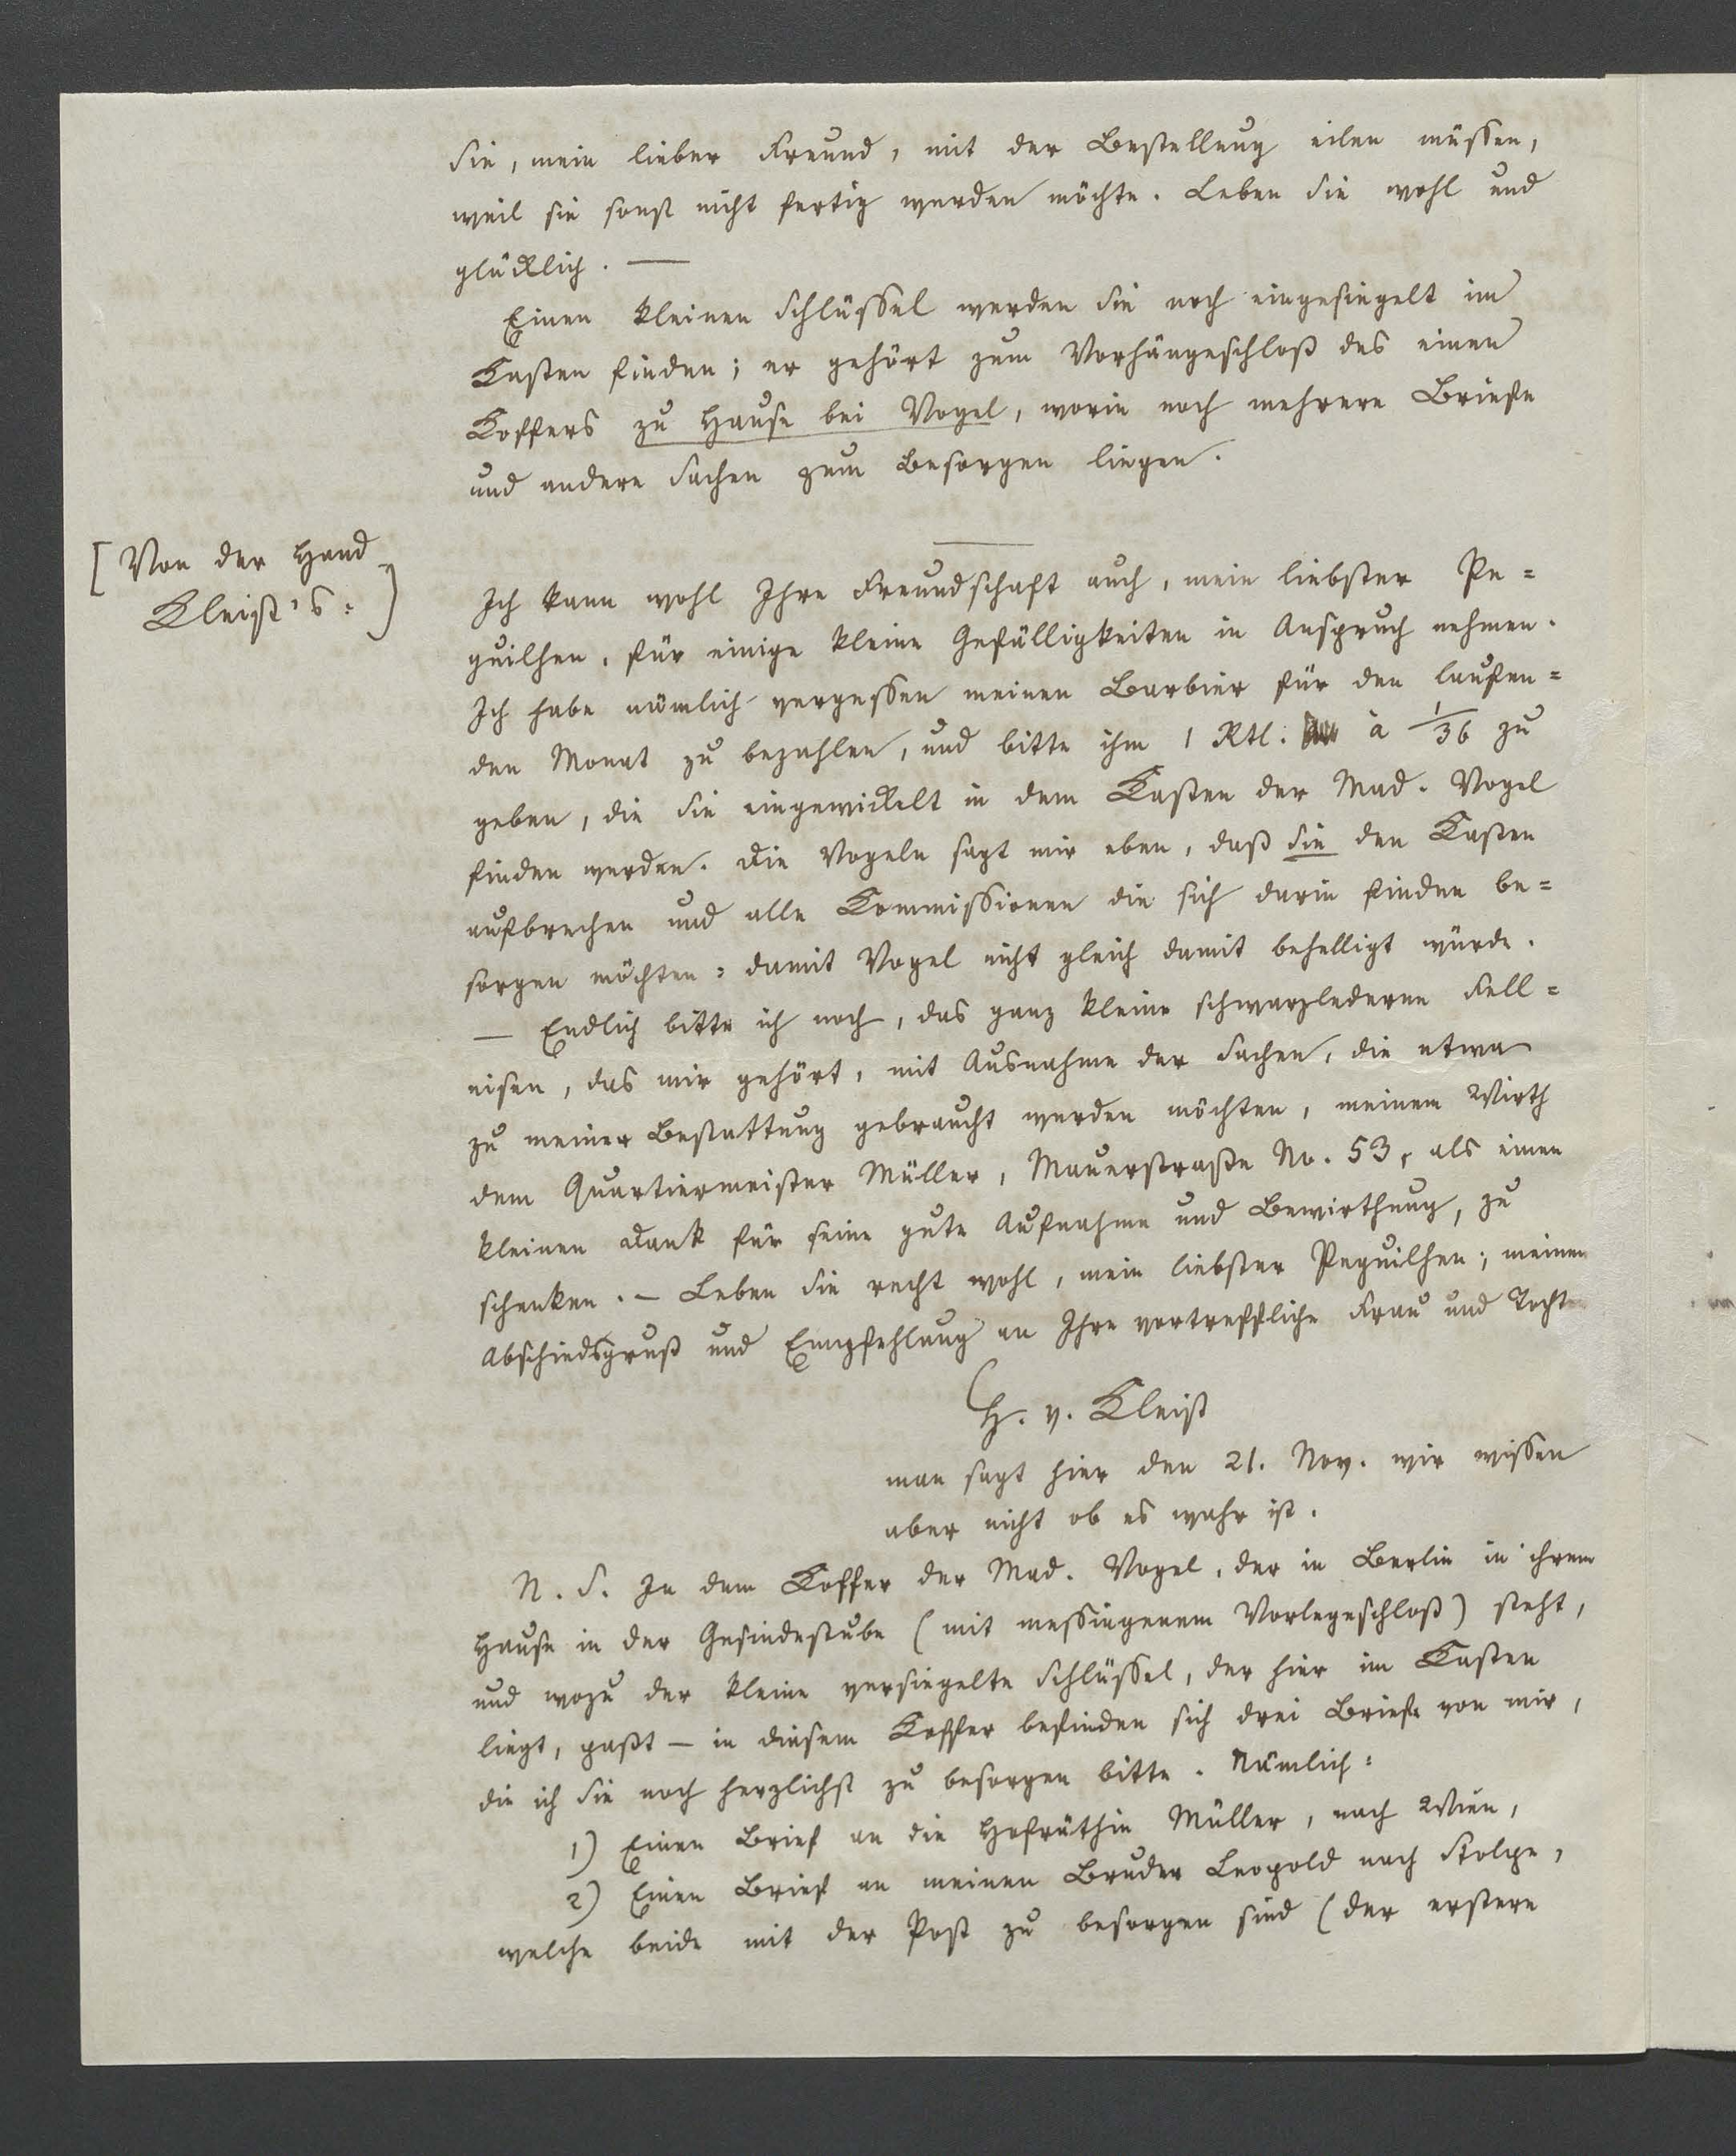 Sie, mein lieber Freund, mit der Bestellung eilen müssen,
weil sie sonst nicht fertig werden möchte. Leben Sie wohl und
glücklich. —
Einen kleinen Schlüssel werden Sie noch eingesiegelt im
Kasten finden; er gehört zum Vorhängeschloß des einen
Koffers zu Hause bei Vogel, worin noch mehrere Briefe
und andere Sachen zum Besorgen liegen.
[Von der Hand
Kleist's:]
Ich kann wohl Ihre Freundschaft auch, mein liebster Pe=
guilhen, für einige kleine Gefälligkeiten in Anspruch nehmen.
Ich habe nämlich vergessen meinen Barbier für den laufen=
den Monat zu bezahlen, und bitte ihm 1 Rtl. à 1/36 zu
geben, die Sie eingewickelt in dem Kasten der Mad. Vogel
finden werden. Die Vogeln sagt mir eben, daß Sie den Kasten
aufbrechen und alle Commissionen die sich darin finden be=
sorgen möchten: damit Vogel nicht gleich damit behelligt würde.
— Endlich bitte ich noch, das ganz kleine schwarzlederne Fell=
eisen, das mir gehört, mit Ausnahme der Sachen, die etwa
zu meiner Bestattung gebraucht werden möchten, meinem Wirth
dem Quartiermeister Müller, Mauerstraße No. 53, als einen
kleinen Dank für seine gute Aufnahme und Bewirthung, zu
schenken. — Leben Sie recht wohl, mein liebster Peguilhen; meinen
Abschiedsgruß und Empfehlung an Ihre vortreffliche Frau und Tocht
H. v. Kleist
man sagt hier den 21. Nov. wir wissen
aber nicht ob es wahr ist.
N. S. In dem Koffer der Mad. Vogel, der in Berlin in ihrem
Hause in der Gesindestube (mit messingenem Vorlegeschloß) steht,
und wozu der kleine versiegelte Schlüssel, der hier im Kasten
liegt, paßt — in diesem Koffer befinden sich drei Briefe von mir,
die ich Sie noch herzlichst zu besorgen bitte. Nämlich:
1) Einen Brief an die Hofräthin Müller, nach Wien,
2) Einen Brief an meinen Bruder Leopold nach Stolpe,
welche beide mit der Post zu besorgen sind (der erstere